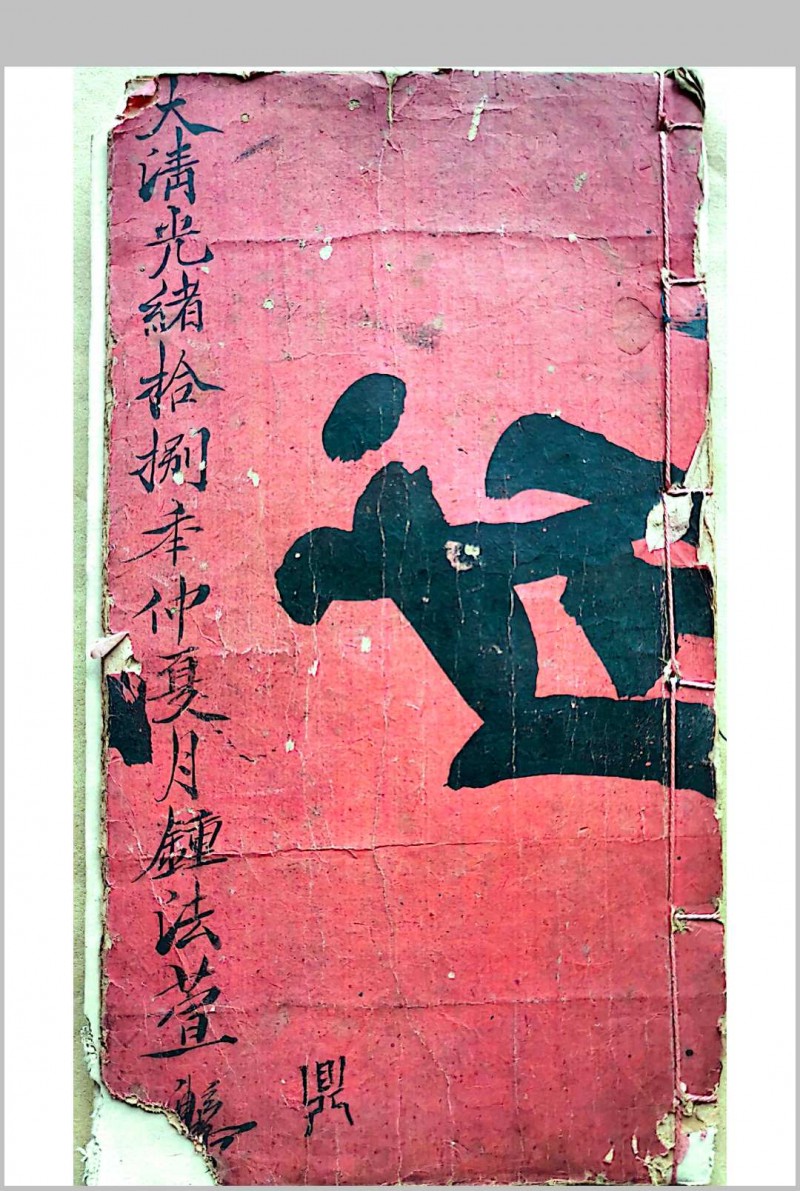 大清光緒拾捌年仲夏月鍾法萱